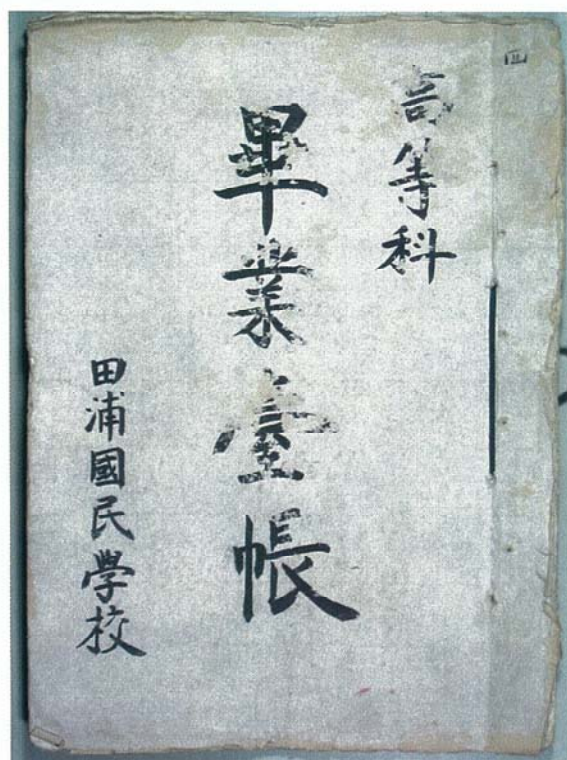 高等科
畢業臺帳
田浦國民學校